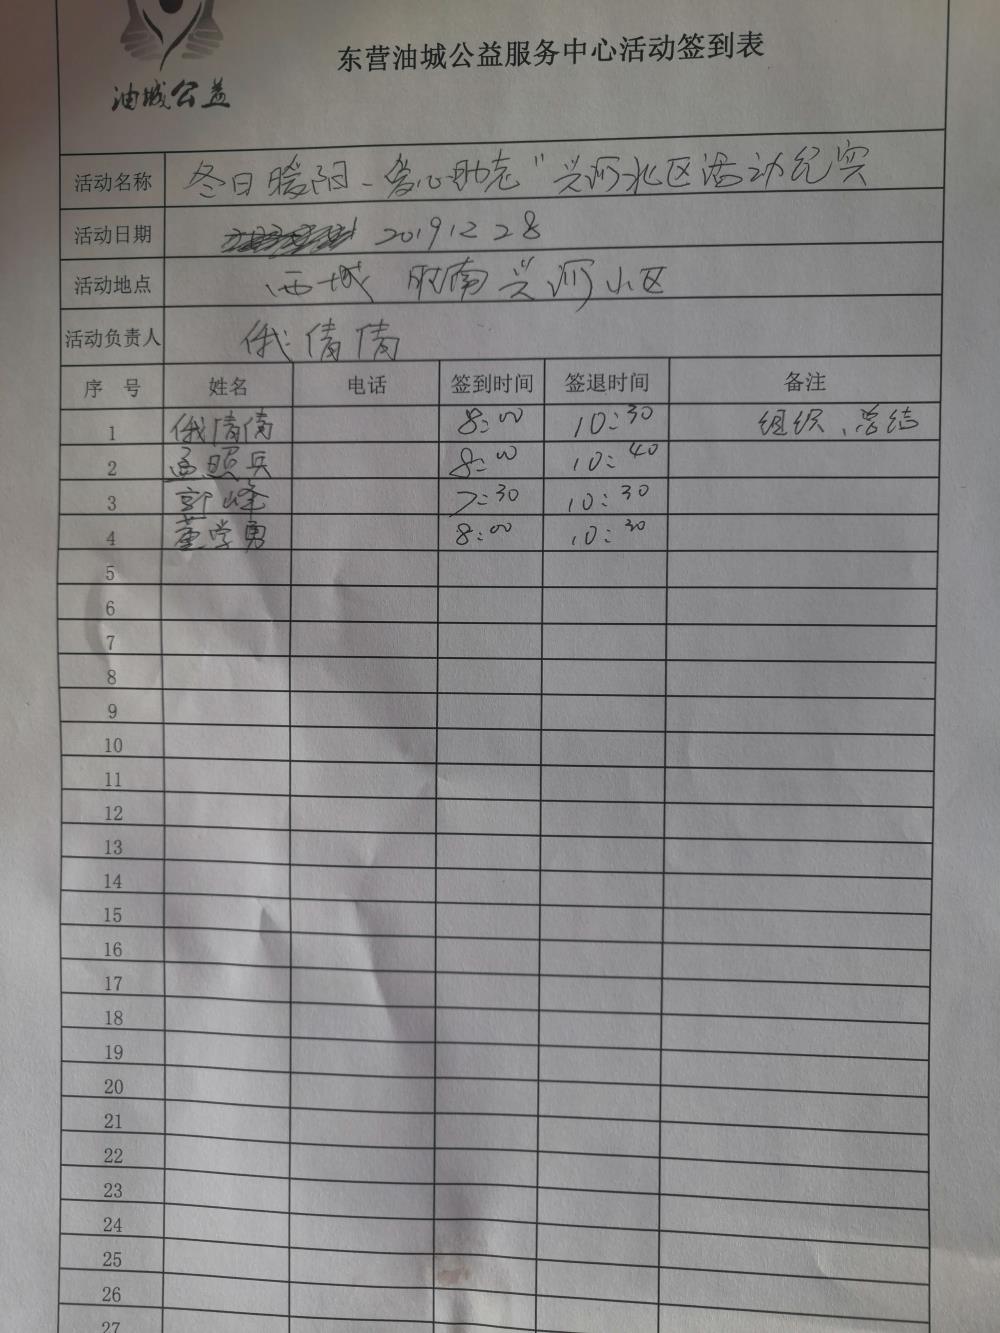 东营油城公益服务中心活动签到表
油城公益
活动名称 冬日暖阳、爱心助老"兴河北区活动纪实
活动日期 2019 12 28
活动地点 西城 胶南兴河小区
活动负责人 俄倩倩
序 号 姓名 电话 签到时间 签退时间 备注
1 俄倩倩 8:00 10:30 组织、总结
2 孟照兵 8:00 10:40
3 郭峰 7:30 10:30
4 董学勇 8:00 10:30
5
6
7
8
9
10
11
12
13
14
15
16
17
18
19
20
21
22
23
24
25
26
27